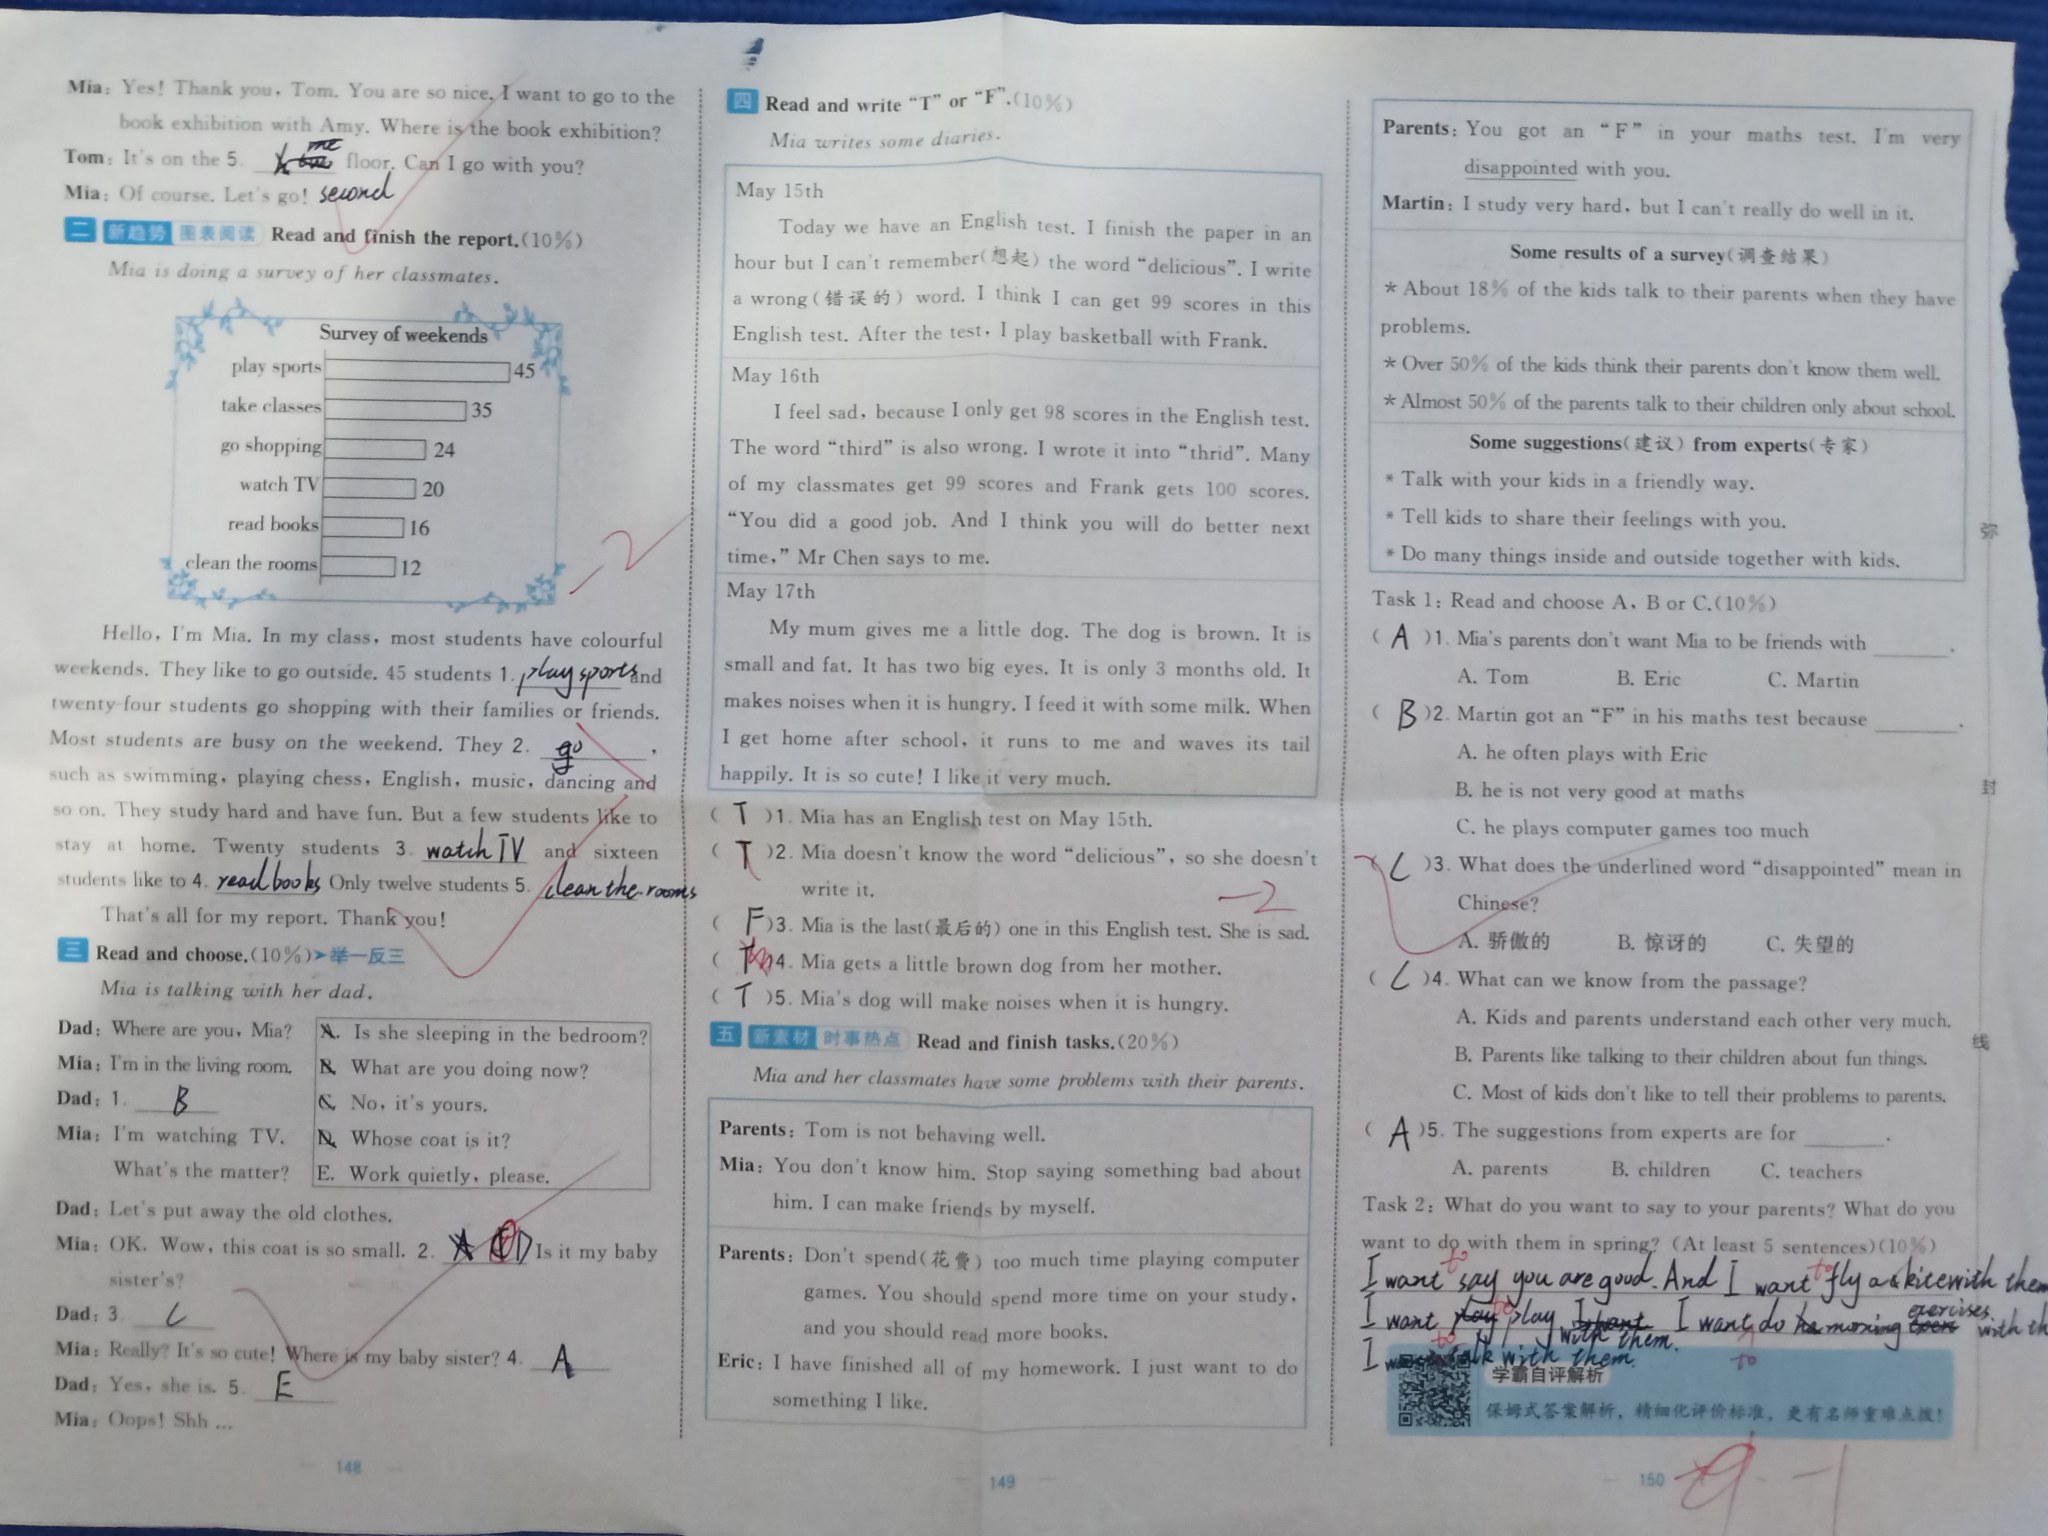 Mia: Yes! Thank you, Tom. You are so nice. I want to go to the
book exhibition with Amy. Where is the book exhibition?
Tom: It's on the 5. me floor. Can I go with you?
Mia: Of course. Let's go! second
二 新趋势 图表阅读 Read and finish the report.(10%)
Mia is doing a survey of her classmates.
Survey of weekends
play sports 45
take classes 35
go shopping 24
watch TV 20
read books 16
clean the rooms 12
-2
Hello, I'm Mia. In my class, most students have colourful
weekends. They like to go outside. 45 students 1. play sports and
twenty-four students go shopping with their families or friends.
Most students are busy on the weekend. They 2. go ,
such as swimming, playing chess, English, music, dancing and
so on. They study hard and have fun. But a few students like to
stay at home. Twenty students 3. watch TV and sixteen
students like to 4. read books Only twelve students 5. clean the rooms
That's all for my report. Thank you!
三 Read and choose.(10%)➤举一反三
Mia is talking with her dad.
Dad: Where are you, Mia?
Mia: I'm in the living room.
Dad: 1. B
Mia: I'm watching TV.
What's the matter?
A. Is she sleeping in the bedroom?
B. What are you doing now?
C. No, it's yours.
D. Whose coat is it?
E. Work quietly, please.
Dad: Let's put away the old clothes.
Mia: OK. Wow, this coat is so small. 2. A D Is it my baby
sister's?
Dad: 3. C
Mia: Really? It's so cute! Where is my baby sister? 4. A
Dad: Yes, she is. 5. E
Mia: Oops! Shh ...
148
四 Read and write "T" or "F".(10%)
Mia writes some diaries.
May 15th
Today we have an English test. I finish the paper in an
hour but I can't remember(想起) the word "delicious". I write
a wrong(错误的) word. I think I can get 99 scores in this
English test. After the test, I play basketball with Frank.
May 16th
I feel sad, because I only get 98 scores in the English test.
The word "third" is also wrong. I wrote it into "thrid". Many
of my classmates get 99 scores and Frank gets 100 scores.
"You did a good job. And I think you will do better next
time," Mr Chen says to me.
May 17th
My mum gives me a little dog. The dog is brown. It is
small and fat. It has two big eyes. It is only 3 months old. It
makes noises when it is hungry. I feed it with some milk. When
I get home after school, it runs to me and waves its tail
happily. It is so cute! I like it very much.
( T )1. Mia has an English test on May 15th.
( T )2. Mia doesn't know the word "delicious", so she doesn't
write it.
-2
( F )3. Mia is the last(最后的) one in this English test. She is sad.
( T )4. Mia gets a little brown dog from her mother.
( T )5. Mia's dog will make noises when it is hungry.
五 新素材 时事热点 Read and finish tasks.(20%)
Mia and her classmates have some problems with their parents.
Parents: Tom is not behaving well.
Mia: You don't know him. Stop saying something bad about
him. I can make friends by myself.
Parents: Don't spend(花费) too much time playing computer
games. You should spend more time on your study,
and you should read more books.
Eric: I have finished all of my homework. I just want to do
something I like.
149
Parents: You got an "F" in your maths test. I'm very
disappointed with you.
Martin: I study very hard, but I can't really do well in it.
Some results of a survey(调查结果)
* About 18% of the kids talk to their parents when they have
problems.
* Over 50% of the kids think their parents don't know them well.
* Almost 50% of the parents talk to their children only about school.
Some suggestions(建议) from experts(专家)
* Talk with your kids in a friendly way.
* Tell kids to share their feelings with you.
* Do many things inside and outside together with kids.
Task 1: Read and choose A, B or C.(10%)
( A )1. Mia's parents don't want Mia to be friends with ______.
A. Tom B. Eric C. Martin
( B )2. Martin got an "F" in his maths test because ______.
A. he often plays with Eric
B. he is not very good at maths
C. he plays computer games too much
( C )3. What does the underlined word "disappointed" mean in
Chinese?
A. 骄傲的 B. 惊讶的 C. 失望的
( C )4. What can we know from the passage?
A. Kids and parents understand each other very much.
B. Parents like talking to their children about fun things.
C. Most of kids don't like to tell their problems to parents.
( A )5. The suggestions from experts are for ______.
A. parents B. children C. teachers
Task 2: What do you want to say to your parents? What do you
want to do with them in spring? (At least 5 sentences)(10%)
I want to say you are good. And I want to fly a kite with them
I want to play with them. I want do morning exercises with th
to
I to talk with them.
学霸自评解析
保姆式答案解析，精细化评价标准，更有名师重难点拨！
150
9 -1
弥
封
线